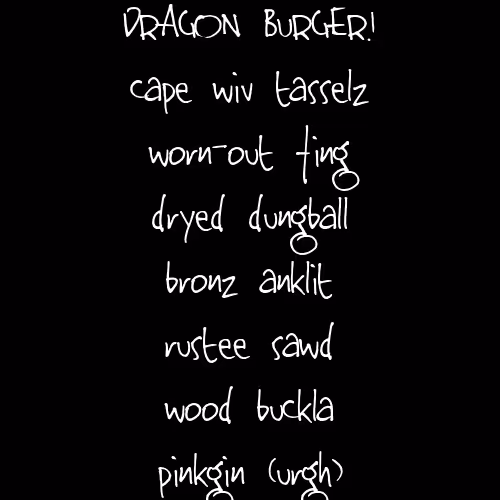 DRAGON BURGER!
cape wiv tasselz
worn-out ting
dryed dungball
bronz anklit
rustee sawd
wood buckla
pinkgin (urgh)